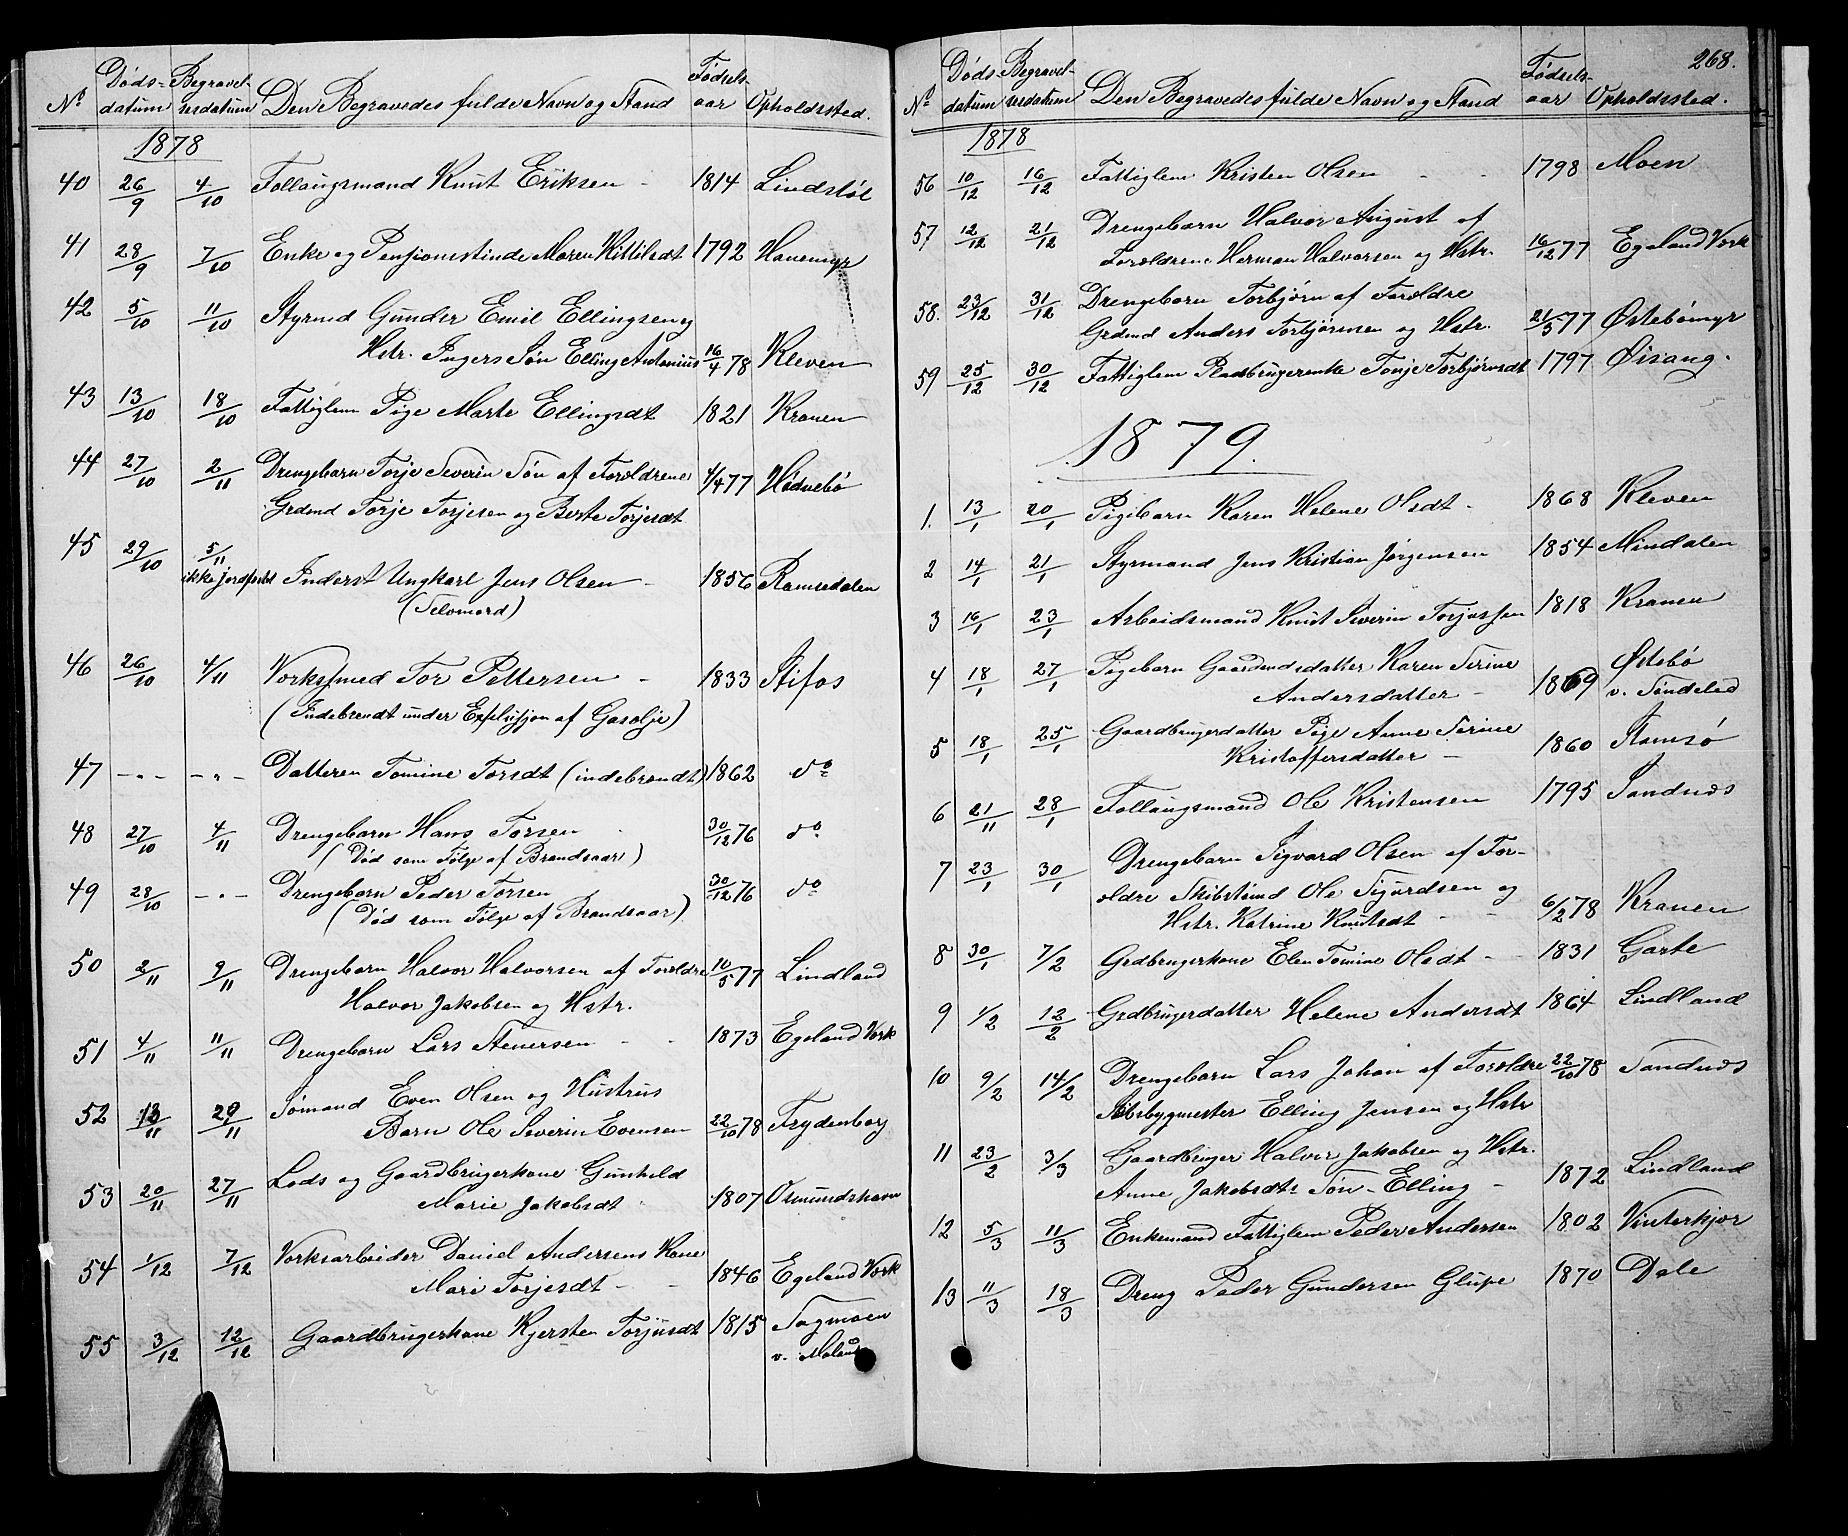 No Døds- datum Begravel- sesdatum Den Begravedes fulde Navn og Stand Fødsels- aar Opholdssted.
1878
40 26/9 4/10 Follaugsmand Knut Eriksen - 1814 Lindstøl
41 28/9 7/10 Enke og Pensionistinde Maren Kittilsdt 1792 Hanemyr
42 5/10 11/10 Styrmd Gunder Emil Ellingsen og
Hstr. Ingers Søn Elling Antonius 16/4 78 Kleven
43 13/10 18/10 Fattiglem Pige Marte Ellingsdt 1821 Kranen
44 27/10 2/11 Drengebarn Torje Severin Søn af Forældrene 4/4 77 Hødnebø
Grdmd Torje Torjesen og Berte Torjesdt
45 29/10 5/11
ikke jordfestet Inderst Ungkarl Jens Olsen - 1856 Ramsdalen
(Selvmord)
46 26/10 4/11 Værksmed Tor Pettersen - 1833 Stifos
(Indebrendt under Explosion af Gasolje)
47 -"- -"- Datteren Tomine Torsdt (indebrændt) 1862 do
48 27/10 4/11 Drengebarn Hans Torsen 30/12 76 do
(Død som Følge af Brandsaar)
49 28/10 -"- Drengebarn Peder Torsen 30/12 76 do
(Død som Følge af Brandsaar)
50 2/11 9/11 Drengebarn Halvor Halvorsen af Forældre 10/5 77 Lindland
Halvor Jakobsen og Hstr.
51 4/11 11/11 Drengebarn Lars Stenersen - - 1873 Egeland Værk
52 13/11 20/11 Sømand Even Olsen og Hustrus
Barn Ole Severin Evensen 22/10 78 Frydenborg
53 20/11 27/11 Lods og Gaardbrugerkone Gunhild
Marie Jakobsdt - 1807 Osmundshavn
54 1/12 7/12 Værksarbeider Daniel Andersens Kone
Mari Torjesdt - - 1846 Egeland Værk
55 3/12 12/12 Gaardbrugerkone Kjersten Torjusdt 1815 Sagmoen
v. Moland
268.
No Døds- datum Begravel- sesdatum Den Begravedes fulde Navn og Stand Fødsels- aar Opholdssted.
1878
56 10/12 16/12 Fattiglem Kristen Olsen - - 1798 Moen
57 12/12 21/12 Drengebarn Halvor August af
Forældrene Herman Halvorsen og Hstr. 16/12 77 Egeland Værk
58. 23/12 31/12 Drengebarn Torbjørn af Forældre
Grdmd Anders Torbjørnsen og Hstr. 21/3 77 Østebømyr
59 25/12 30/12 Fattiglem Pladsbrugerenke Tonje Torbjørnsdt 1797 Øisang.
1879.
1. 13/1 20/1 Pigebarn Karen Helene Olsdt - 1868 Kleven
2 14/1 21/1 Styrmand Jens Kristian Jørgensen 1854 Mindalen
3 16/1 23/1 Arbeidsmand Knut Severin Torjussen 1818 Kranen
4 18/1 27/1 Pigebarn Gaardmdsdatter Karen Serine
Andersdatter - 1869 Østebø
v. Søndeled
5 18/1 25/1 Gaardbrugerdatter Pige Anne Serine
Kristoffersdatter - 1860 Stamsø
6 21/11 28/1 Follaugsmand Ole Kristensen 1795 Sandnæs
7 23/1 30/1 Drengebarn Sigvard Olsen af For-
ældre Skibstømd Ole Sigurdsen og
Hstr. Katrine Knutsdt - - 6/2 78 Kranen
8 30/1 7/2 Grdbrugerkone Elen Tomine Olsdt - 1831 Garte
9 1/2 12/2 Grdbrugerdatter Helene Andersdt 1864 Lindland
10 9/2 14/2 Drengebarn Lars Johan af Forældre 22/10 78 Sandnæs
Skibsbygmester Elling Jensen og Hstr
11 23/2 3/3 Gaardbruger Halvor Jakobsen og Hstr.
Anne Jakobsdts Søn - Elling - 1872 Lindland
12 5/3 11/3 Enkemand Fattiglem Peder Andersen 1802 Vinterkjær
13 11/3 18/3 Dreng Peder Gundersen Glupe 1870 Dale